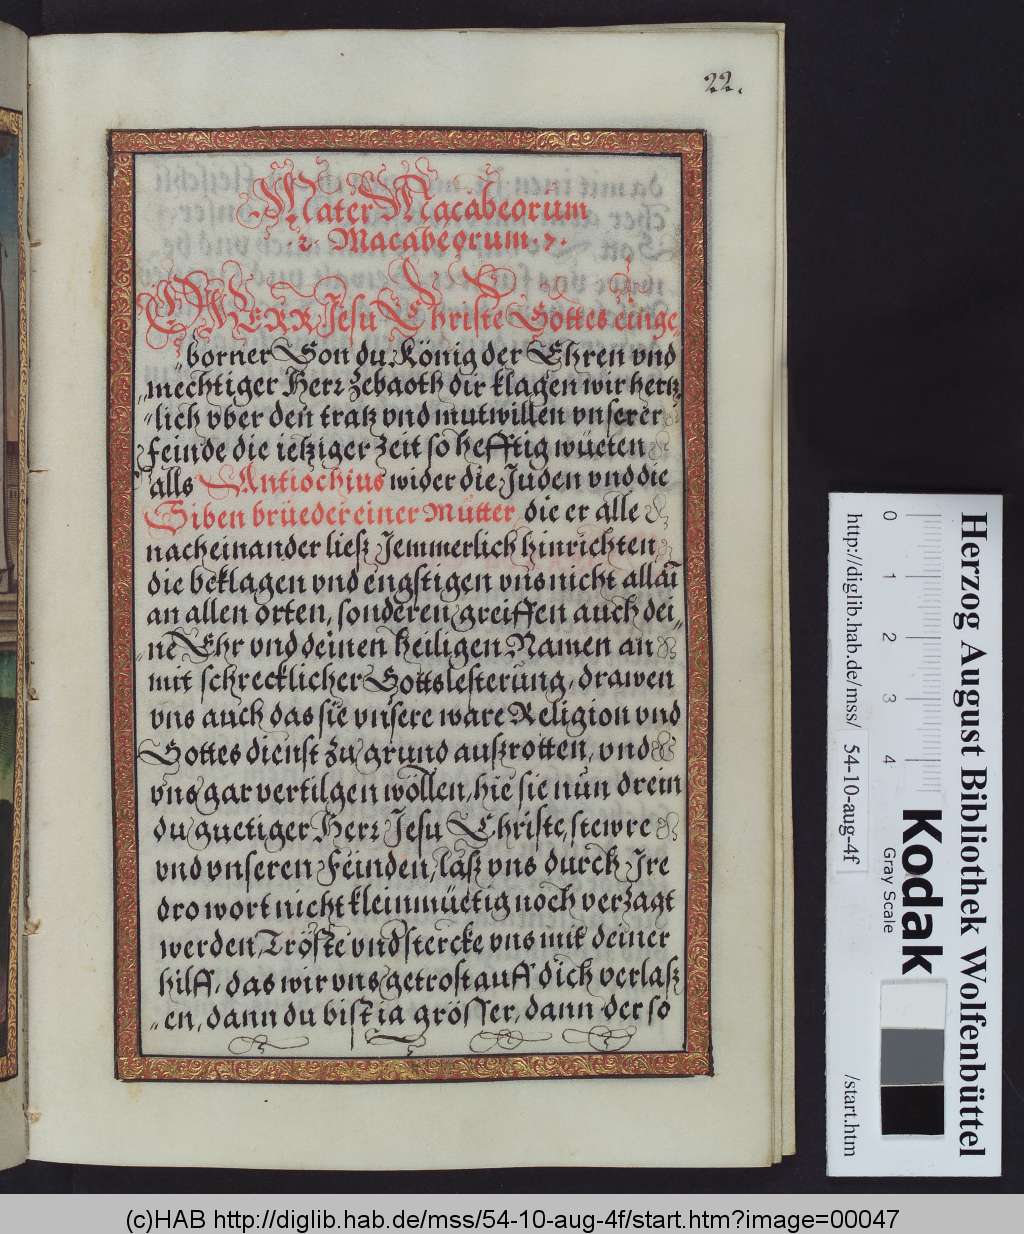 22.
Mater Macabeorum
.2. Macabeorum .7.
HERR Jesu Christe Gottes einge
„borner Son du König der Ehren vnd
„mechtiger Herr Zebaoth dir klagen wir hertz„
„lich vber den tratz vnd mutwillen vnserer
Feinde die ietziger Zeit so hefftig wüeten
alls Antiochius wider die Juden vnd die
Siben brüeder einer Mutter die er alle
nacheinander ließ Jemmerlich hinrichten
die beklagen vnd engstigen vns nicht allai
an allen orten, sonderen greiffen auch dei„
„ne Ehr vnd deinen heiligen Namen an
mit schrecklicher Gottslesterung, drawen
vns auch das sie vnsere ware Religion vnd
Gottes dienst zu grund außrotten, vnd
vns gar vertilgen wöllen, hie sie nun drein
du guetiger Herr Jesu Christe, stewre
vnd vnseren Feinden, laß vns durch Ire
dro wort nicht kleinmüetig noch verzagt
werden, Tröste vnd stercke vns mit deiner
hilff, das wir vns getrost auff dich verlaß
„en, dann du bist ia grösser, dann der so
Herzog August Bibliothek Wolfenbüttel
http://diglib.hab.de/mss/ 54-10-aug-4f /start.htm
0 1 2 3 4
Kodak
Gray Scale
(c)HAB http://diglib.hab.de/mss/54-10-aug-4f/start.htm?image=00047